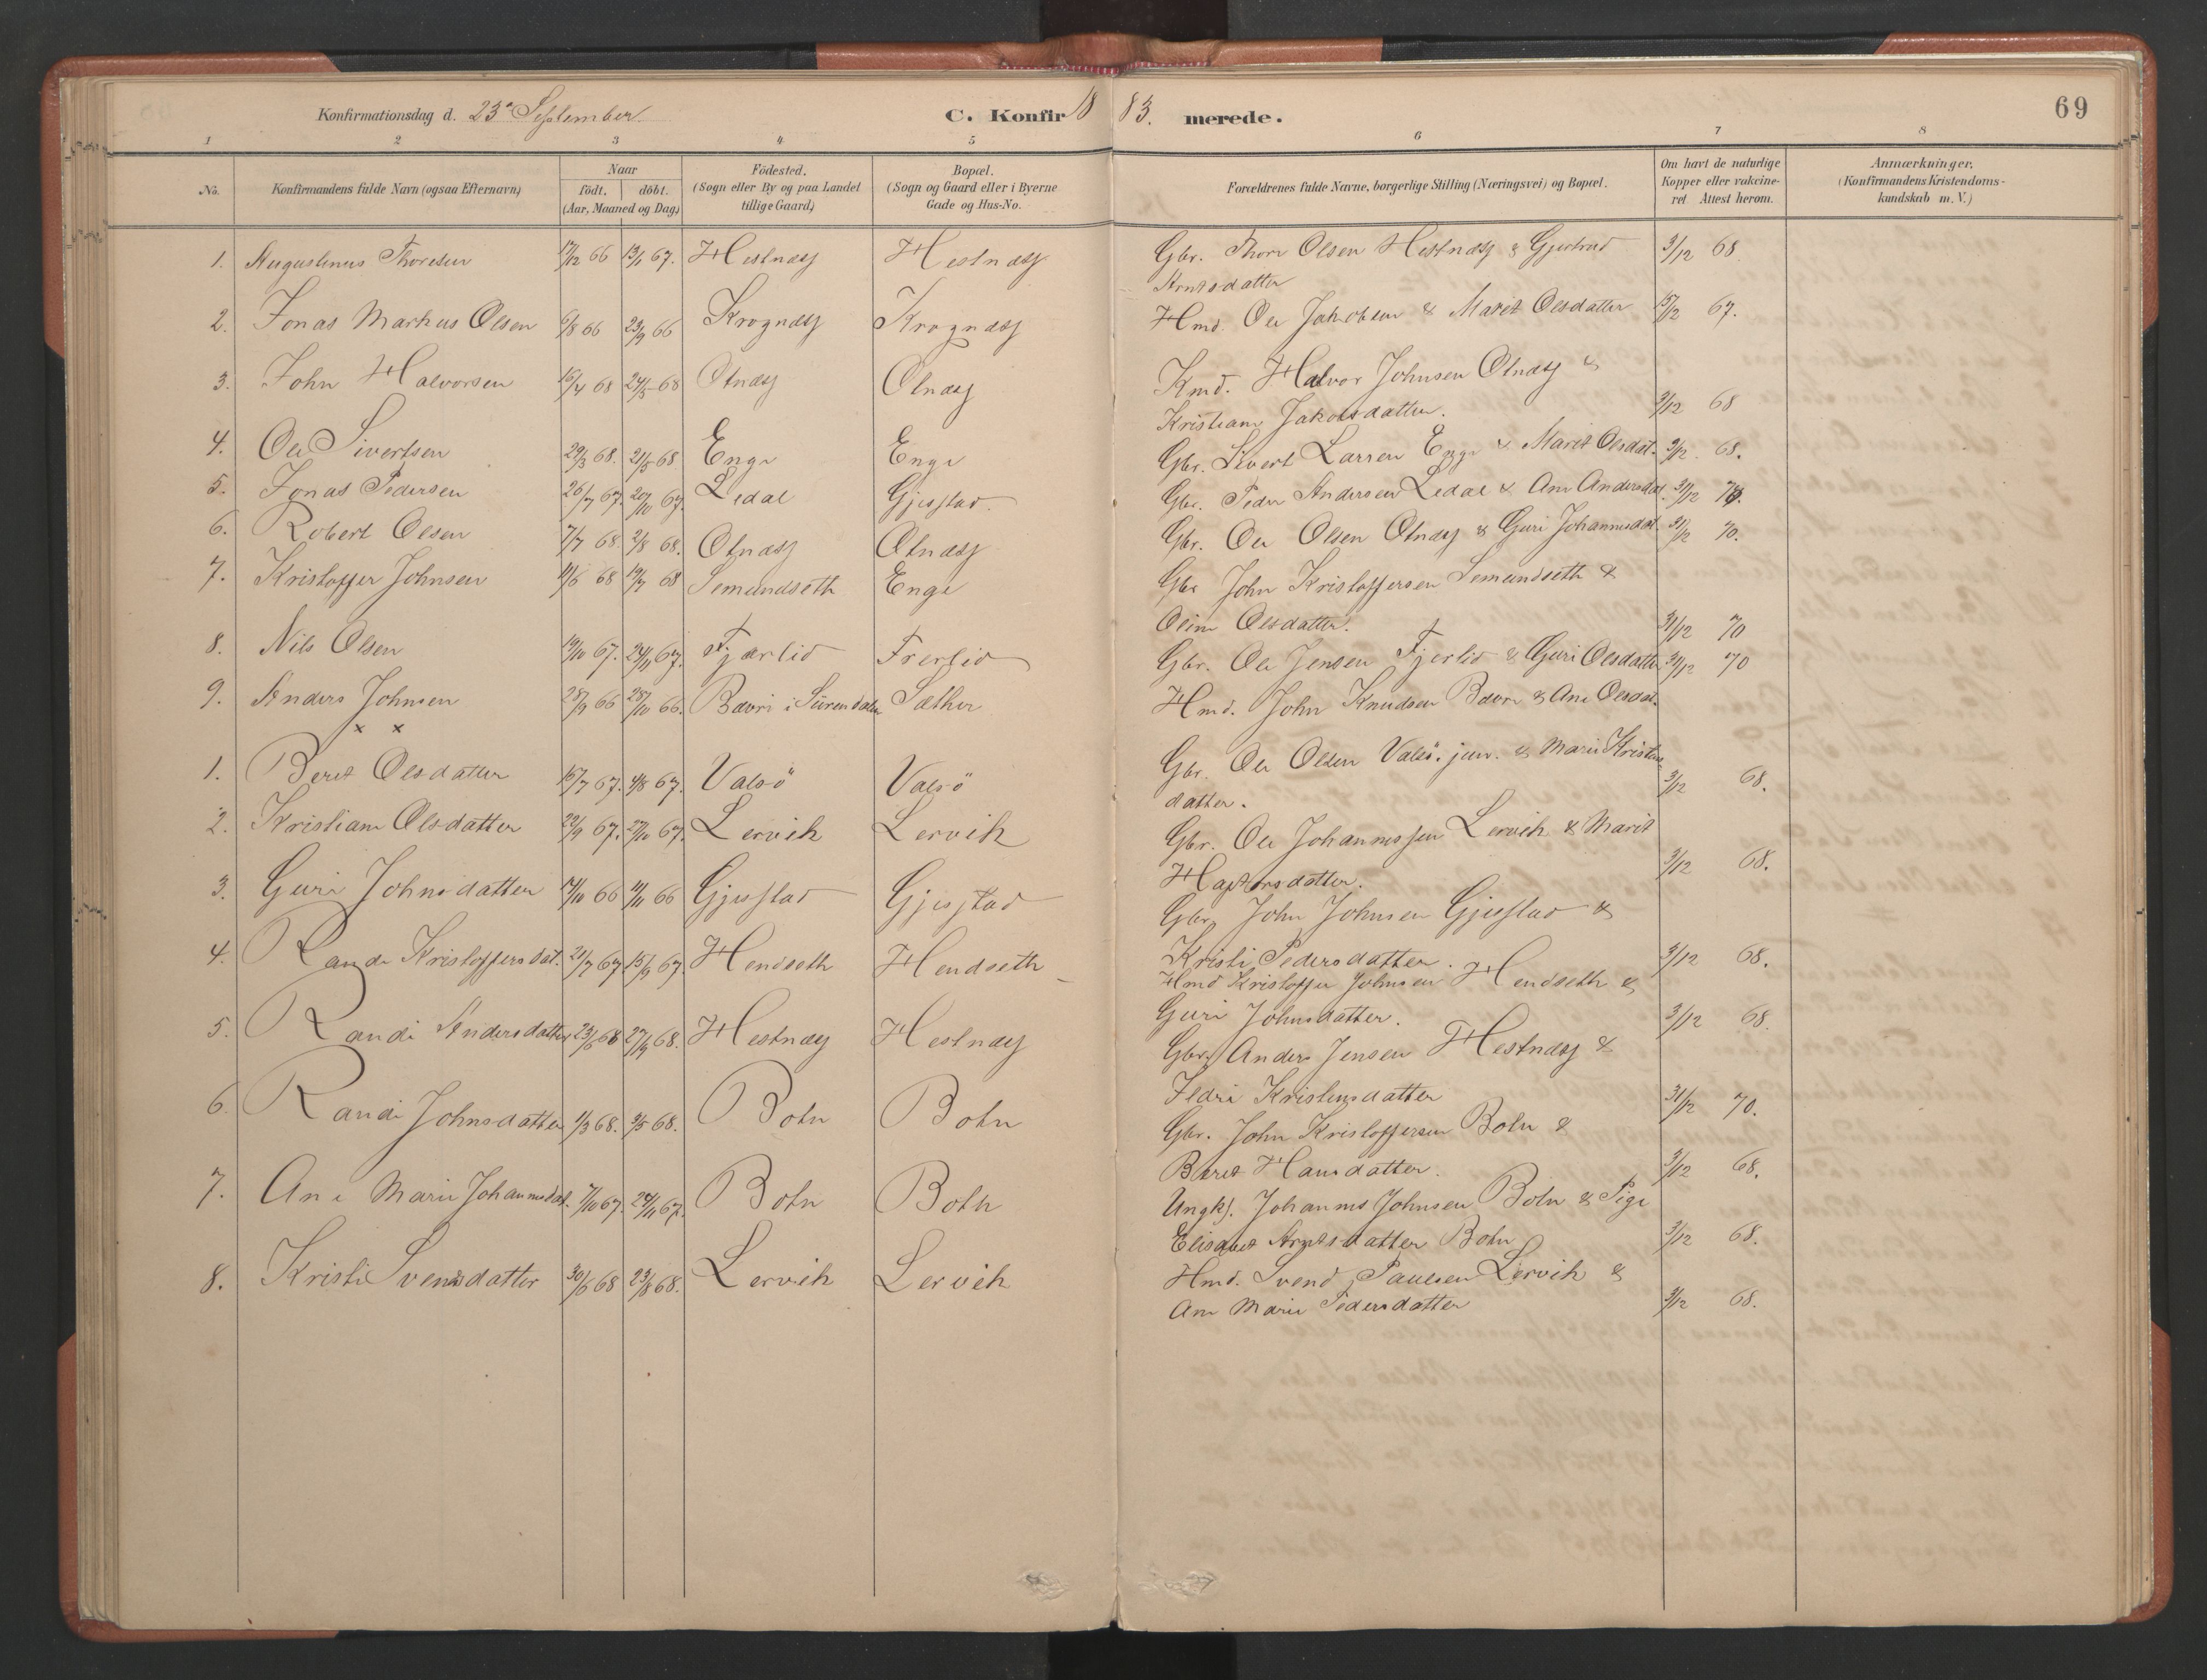 Konfirmationsdag d. 23de September 1883. C. Konfirmerede. 69
1 2 3 4 5 6 7 8
No. Konfirmandens fulde Navn (ogsaa Efternavn) Naar født. døbt. (Aar, Maaned og Dag) Födested. (Sogn eller By og paa Landet tillige Gaard) Bopæl. (Sogn og Gaard eller i Byerne Gade og Hus-No. Forældrenes fulde Navne, borgerlige Stilling (Næringsvei) og Bopæl. Om havt de naturlige Kopper eller vakcineret Attest herom. Anmærkninger. (Konfirmandens Kristendomskundskab m. V.)
1. Augustinus Thoresen 17/12 66 13/1 67. Hestnæs Hestnæs Gbr. Thore Olsen Hestnæs & Gjertrud 3/12 68
Arntsdatter
2. Jonas Markus Olsen 6/8 66 23/9 66 Krognæs Krognæs Hmd. Ole Jakobsen & Marit Olsdatter 15/2 67.
3. John Halvorsen 16/4 68 24/5 68 Otnæs Otnæs Kmd. Halvor Johnsen Otnæs &
Kristiane Jakobsdatter. 3/12 68
4. Ole Sivertsen 29/3 68. 21/5 68 Enge Enge Gbr. Sivert Larsen Enge & Marit Olsdat. 3/12. 68.
5. Jonas Pedersen 26/7 67. 20/10 67. Ledal Gjesstad. Gbr. Peder Andersen Ledal & Ane Andersdat. 31/12 70.
6. Robert Olsen 7/7 68. 2/8 68. Otnæs Otnæs Gbr. Ole Olsen Otnæs & Guri Johannesdat. 31/12 70.
7. Kristoffer Johnsen 11/6 68 19/7 68 Semundseth Enge Gbr John Kristoffersen Semundseth &
Oline Olsdatter. 31/12 70
8. Nils Olsen 19/10 67. 24/11 67. Fjærlid Frerlid Gbr. Ole Jensen Fjerlid & Guri Olsdatter 31/12 70
9. Anders Johnsen 28/9 66 28/10 66. Bævri i Surendalen Sæther Hmd. John Knudsen Bævre & Ane Olsdat.
× ×
1. Beret Olsdatter 16/7 67. 4/8 67. Valsö Valsö Gbr. Ole Olsen Valsö. jun. & Marie Kristens-
datter. 3/12 68.
2. Kristiane Olsdatter 22/9 67. 27/10 67. Lervik Lervik Gbr. Ole Johannessen Lervik & Marit
datter. 3/12 68.
3. Guri Johnsdatter 14/10 66 11/11 66 Gjesstad Gjesstad Gbr. John Johnsen Gjesstad &
Kristi Pedersdatter. 3/12 68.
4. Randi Kristoffersdat. 21/7 67 15/9 67. Hendseth Hendseth Hmd Kristoffer Johnsen Hendseth &
Guri Johnsdatter. 3/12 68.
5. Randi Andersdatter 23/6 68 27/9 68. Hestnæs Hestnæs Gbr. Anders Jensen Hestnæs &
Ildri Kristensdatter 31/12 70.
6. Randi Johnsdatter 1/3 68. 3/5 68. Botn Botn Gbr. John Kristoffersen Botn &
Beret Hansdatter. 3/12 68.
7. Ane Marie Johannesdat. 7/10 67. 24/11 67. Botn Botn Ungk. Johannes Johnsen Botn & Pige
Elisabet Arntsdatter Botn 3/12 68.
8. Kristi Svendsdatter 30/6 68 23/8 68. Lervik Lervik Hmd. Svend Paulsen Lervik &
Ane Marie Pedersdatter 3/12 68.